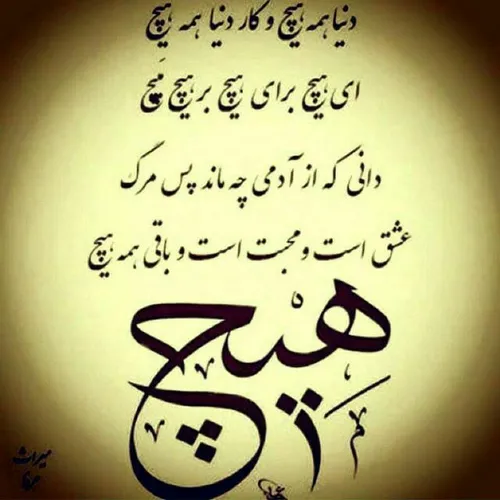 دنیا همه هیچ و کار دنیا همه هیچ
ای هیچ برای هیچ بر هیچ مپیچ
دانی که از آدمی چه ماند پس مرگ
عشق است و محبت است و باقی همه هیچ
هیچ
میراث